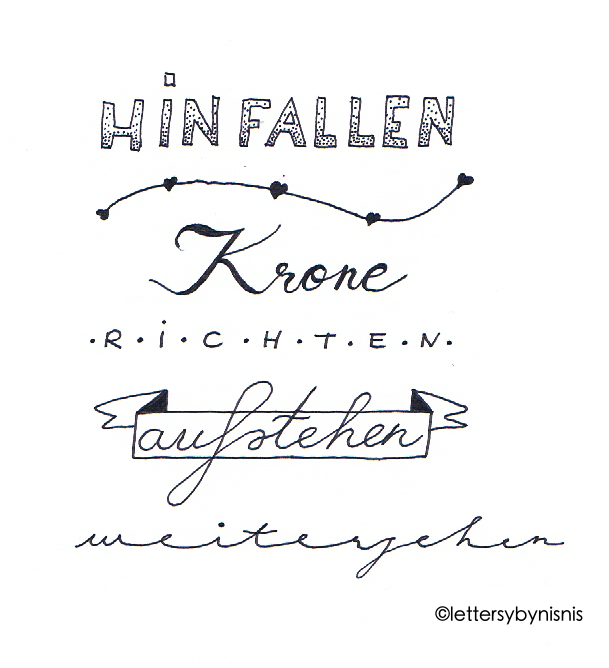 HiNFALLEN
Krone
·R·i·C·H·T·E·N·
aufstehen
weitergehen
©lettersybynisnis